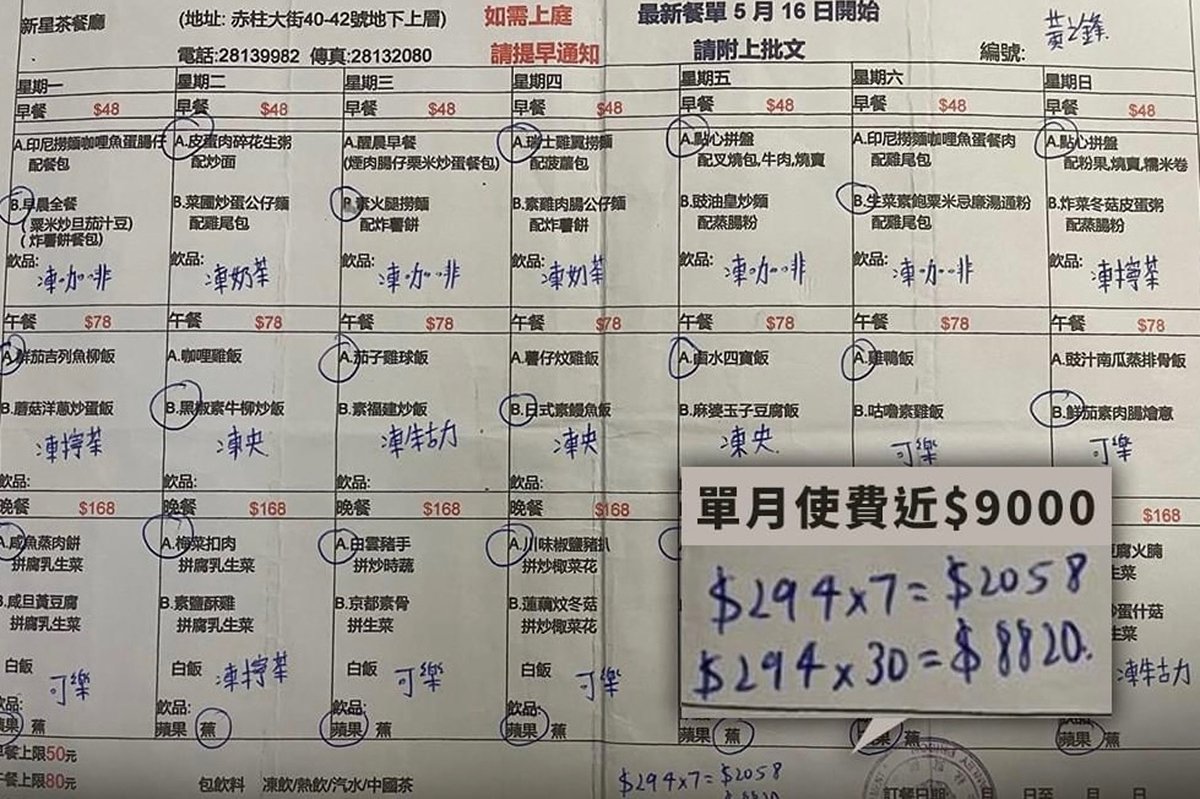 新星茶餐廳 (地址: 赤柱大街40-42號地下上層) 如需上庭 最新餐單 5 月 16 日開始 黃之鋒
電話:28139982 傳真:28132080 請提早通知 請附上批文 編號:
星期一 星期二 星期三 星期四 星期五 星期六 星期日
早餐 $48 早餐 $48 早餐 $48 早餐 $48 早餐 $48 早餐 $48 早餐 $48
A.印尼撈麵咖哩魚蛋腸仔 A.皮蛋肉碎花生粥 A.醒晨早餐 A.瑞士雞翼撈麵 A.點心拼盤 A.印尼撈麵咖哩魚蛋餐肉 A.點心拼盤
配餐包 配炒面 (煙肉腸仔栗米炒蛋餐包) 配菠蘿包 配叉燒包,牛肉,燒賣 配雞尾包 配粉果,燒賣,糯米卷
B.早晨全餐 B.菜圃炒蛋公仔麵 B.素火腿撈麵 B.素雞肉腸公仔麵 B.豉油皇炒麵 B.生菜素鮑粟米忌廉湯通粉 B.炸菜冬菇皮蛋粥
(粟米炒旦茄汁豆) 配雞尾包 配炸薯餅 配炸薯餅 配蒸腸粉 配雞尾包 配蒸腸粉
(炸薯餅餐包)
飲品: 飲品: 飲品: 飲品: 飲品: 飲品: 飲品:
凍咖啡 凍奶茶 凍咖啡 凍奶茶 凍咖啡 凍咖啡 凍檸茶
午餐 $78 午餐 $78 午餐 $78 午餐 $78 午餐 $78 午餐 $78 午餐 $78
A.鮮茄吉列魚柳飯 A.咖哩雞飯 A.茄子雞球飯 A.薯仔炆雞飯 A.鹵水四寶飯 A.雞鴨飯 A.豉汁南瓜蒸排骨飯
B.蘑菇洋蔥炒蛋飯 B.黑椒素牛柳炒飯 B.素福建炒飯 B.日式素鰻魚飯 B.麻婆玉子豆腐飯 B.咕嚕素雞飯 B.鮮茄素肉腸燴意
凍檸茶 凍央 凍朱古力 凍央 凍央 可樂 可樂
飲品: 飲品: 飲品: 飲品:
晚餐 $168 晚餐 $168 晚餐 $168 晚餐 $168 $168
A.咸魚蒸肉餅 A.梅菜扣肉 A.白雲豬手 A.川味椒鹽豬扒 腐火腩
拼腐乳生菜 拼腐乳生菜 拼炒時蔬 拼炒椰菜花 生菜
B.咸旦黃豆腐 B.素鹽酥雞 B.京都素骨 B.蓮藕炆冬菇 炒蛋什菇
拼腐乳生菜 拼腐乳生菜 拼生菜 拼炒椰菜花 生菜
白飯 白飯 白飯 白飯
可樂 凍檸茶 可樂 可樂 凍朱古力
飲品: 飲品: 飲品: 飲品:
蘋果 蕉 蘋果 蕉 蘋果 蕉 蘋果 蕉 蘋果 蕉 蘋果 蕉 蘋果 蕉
單月使費近$9000
$294x7=$2058
$294x30=$8820.
早餐上限50元
午餐上限80元 包飲料 凍飲/熱飲/汽水/中國茶
$294x7=$2058
訂餐日期: 月 日至 月 日